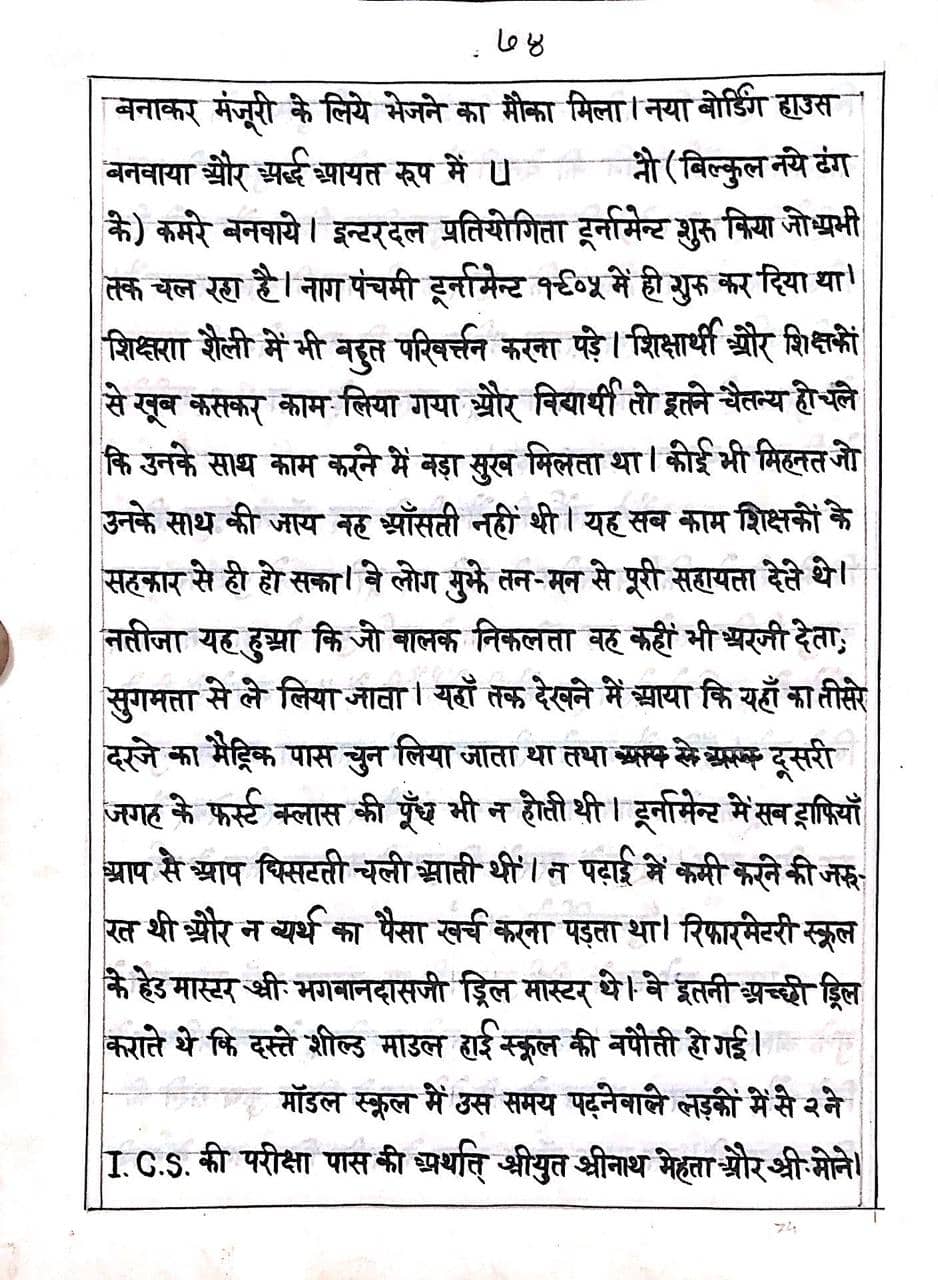 ७४
बनाकर मंजूरी के लिये भेजने का मौका मिला। नया बोर्डिंग हाउस
बनवाया और अर्द्ध आयत रूप में ⊔ नौ (बिल्कुल नये ढंग
के) कमरे बनवाये। इन्टरदल प्रतियोगिता टूर्नामेन्ट शुरू किया जो अभी
तक चल रहा है। नाग पंचमी टूर्नामेन्ट १९०५ में ही शुरु कर दिया था।
शिक्षण शैली में भी बहुत परिवर्त्तन करना पड़े। शिक्षार्थी और शिक्षकों
से खूब कसकर काम लिया गया और विद्यार्थी तो इतने चैतन्य हो चले
कि उनके साथ काम करने में बड़ा सुख मिलता था। कोई भी मिहनत जो
उनके साथ की जाय वह आँसती नहीं थी। यह सब काम शिक्षकों के
सहकार से ही हो सका। वे लोग मुझे तन-मन से पूरी सहायता देते थे।
नतीजा यह हुआ कि जो बालक निकलता वह कहीं भी अरजी देता;
सुगमता से ले लिया जाता। यहाँ तक देखने में आया कि यहाँ का तीसरे
दरजे का मैट्रिक पास चुन लिया जाता था तथा आप से आप दूसरी
जगह के फर्स्ट क्लास की पूँछ भी न होती थी। टूर्नामेन्ट में सब ट्राफियाँ
आप से आप घिसटती चली आती थीं। न पढ़ाई में कमी करने की जरू-
रत थी और न व्यर्थ का पैसा खर्च करना पड़ता था। रिफारमेटरी स्कूल
के हेड मास्टर श्री. भगवानदासजी ड्रिल मास्टर थे। वे इतनी अच्छी ड्रिल
कराते थे कि दस्ते शील्ड माडल हाई स्कूल की बपौती हो गई।
मॉडल स्कूल में उस समय पढ़नेवाले लड़कों में से २ ने
I.C.S. की परीक्षा पास की अर्थात् श्रीयुत श्रीनाथ मेहता और श्री. मोने।
74